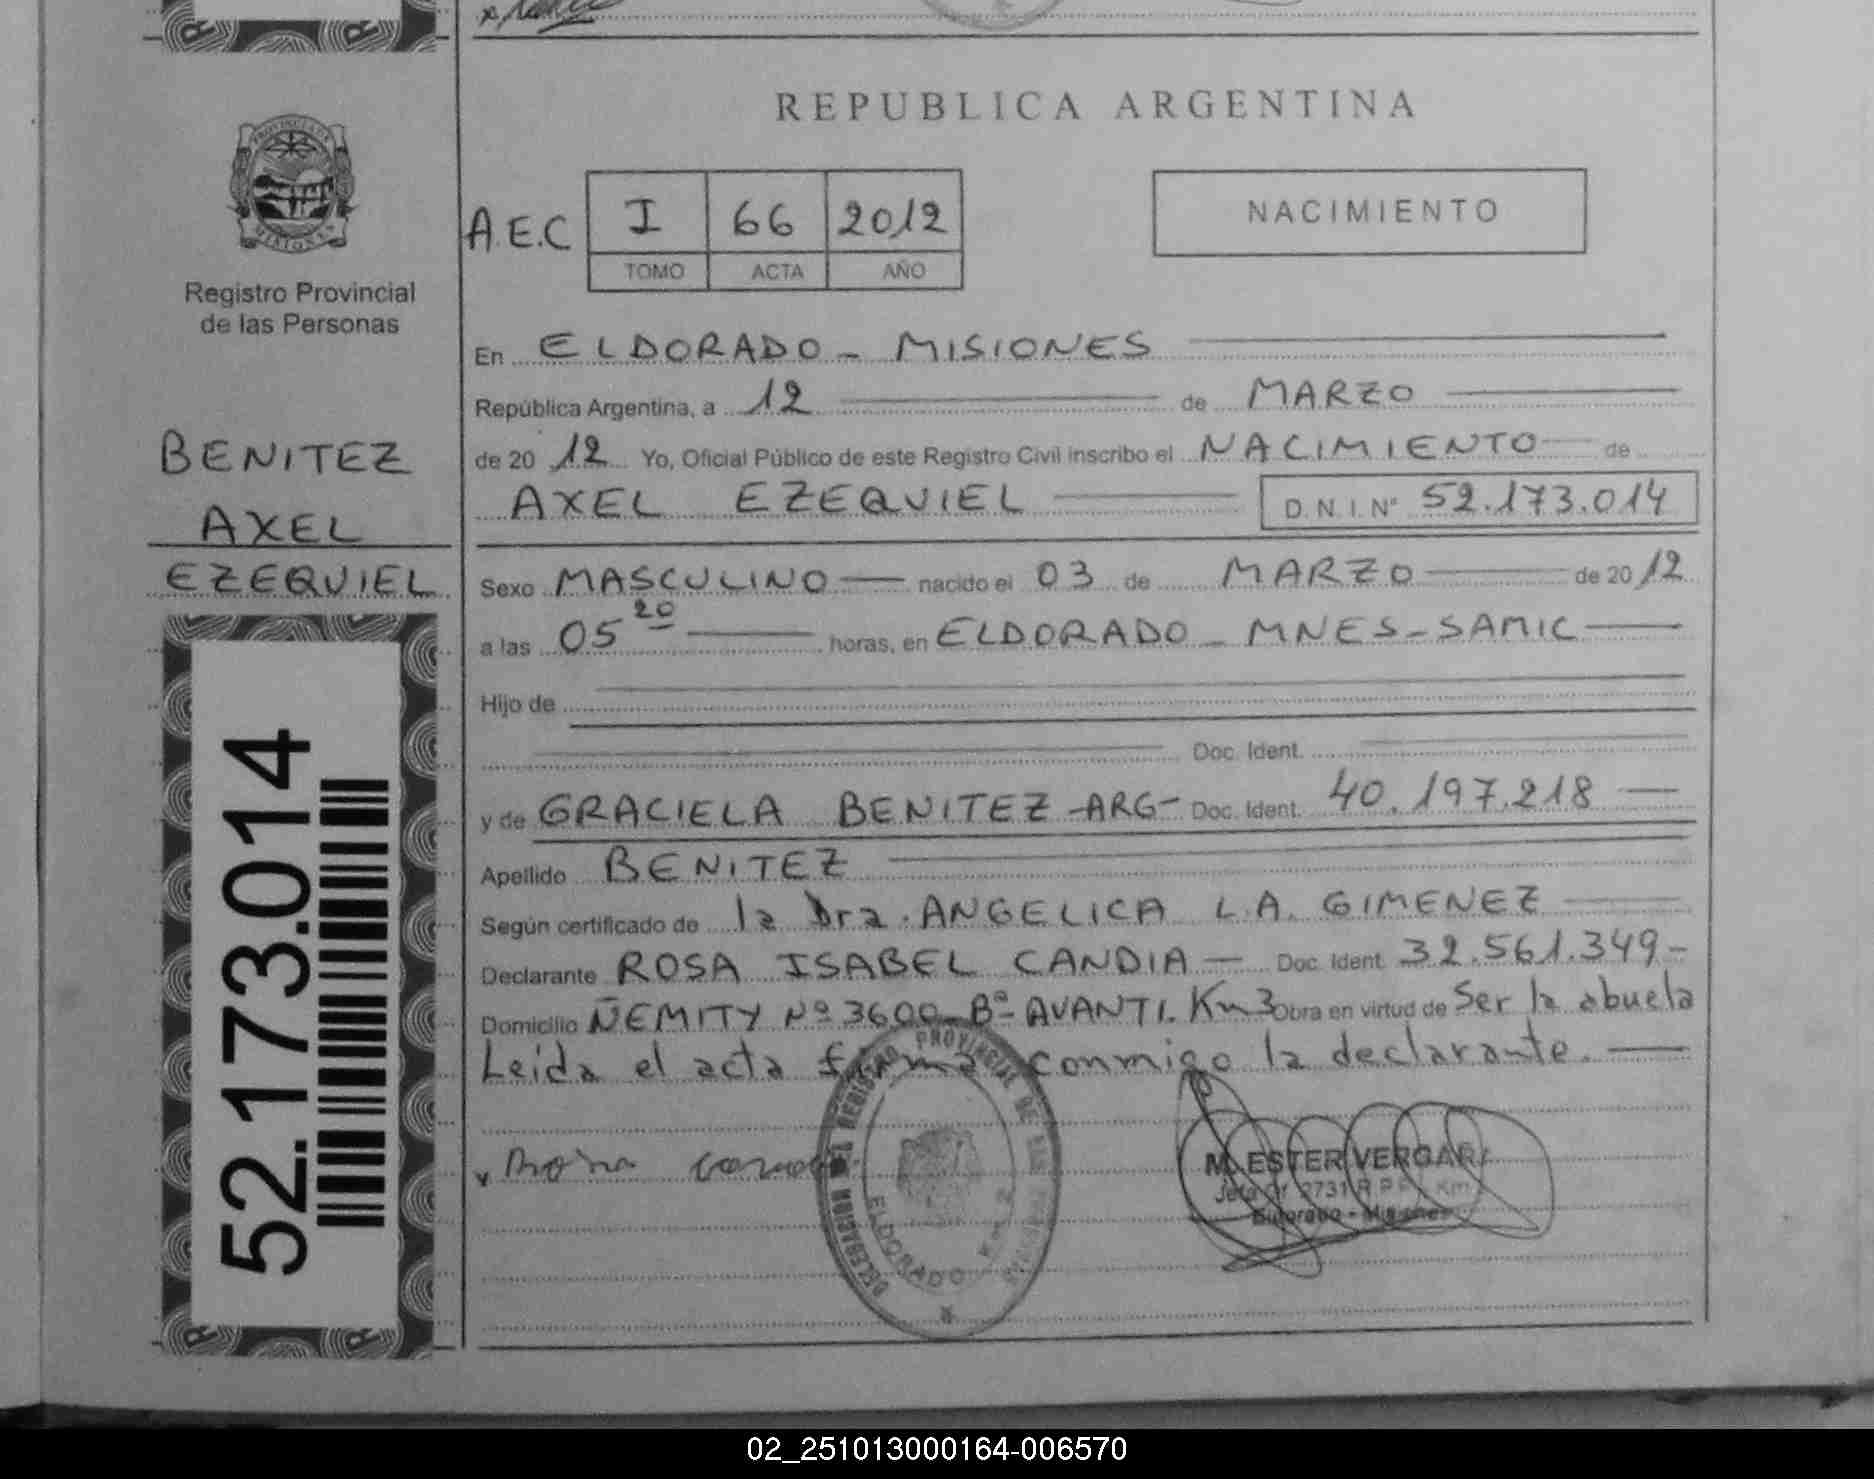 REPUBLICA ARGENTINA
PROVINCIA DE
MISIONES
Registro Provincial
de las Personas
A.E.C
I 66 2012
TOMO ACTA AÑO
NACIMIENTO
En ELDORADO - MISIONES
República Argentina, a 12 de MARZO
de 20 12 Yo, Oficial Público de este Registro Civil inscribo el NACIMIENTO de
AXEL EZEQUIEL D.N.I.Nº 52.173.014
BENITEZ
AXEL
EZEQUIEL
Sexo MASCULINO nacido el 03 de MARZO de 20 12
a las 05 20 horas, en ELDORADO - MNES - SAMIC
Hijo de
Doc. Ident.
y de GRACIELA BENITEZ -ARG- Doc. Ident. 40.197.218
Apellido BENITEZ
Según certificado de la Dra. ANGELICA L.A. GIMENEZ
Declarante ROSA ISABEL CANDIA Doc. Ident. 32.561.349-
Domicilio ÑEMITY Nº 3600 - Bº AVANTI. Km 3 Obra en virtud de Ser la abuela
Leida el acta firma conmigo la declarante.
52.173.014
DELEGACION DEL REGISTRO PROVINCIAL DE LAS PERSONAS
ELDORADO Km. 2
M. ESTER VERGARA
Jefa Of. 2731 R.P.P. Km
Eldorado - Misiones
02_251013000164-006570